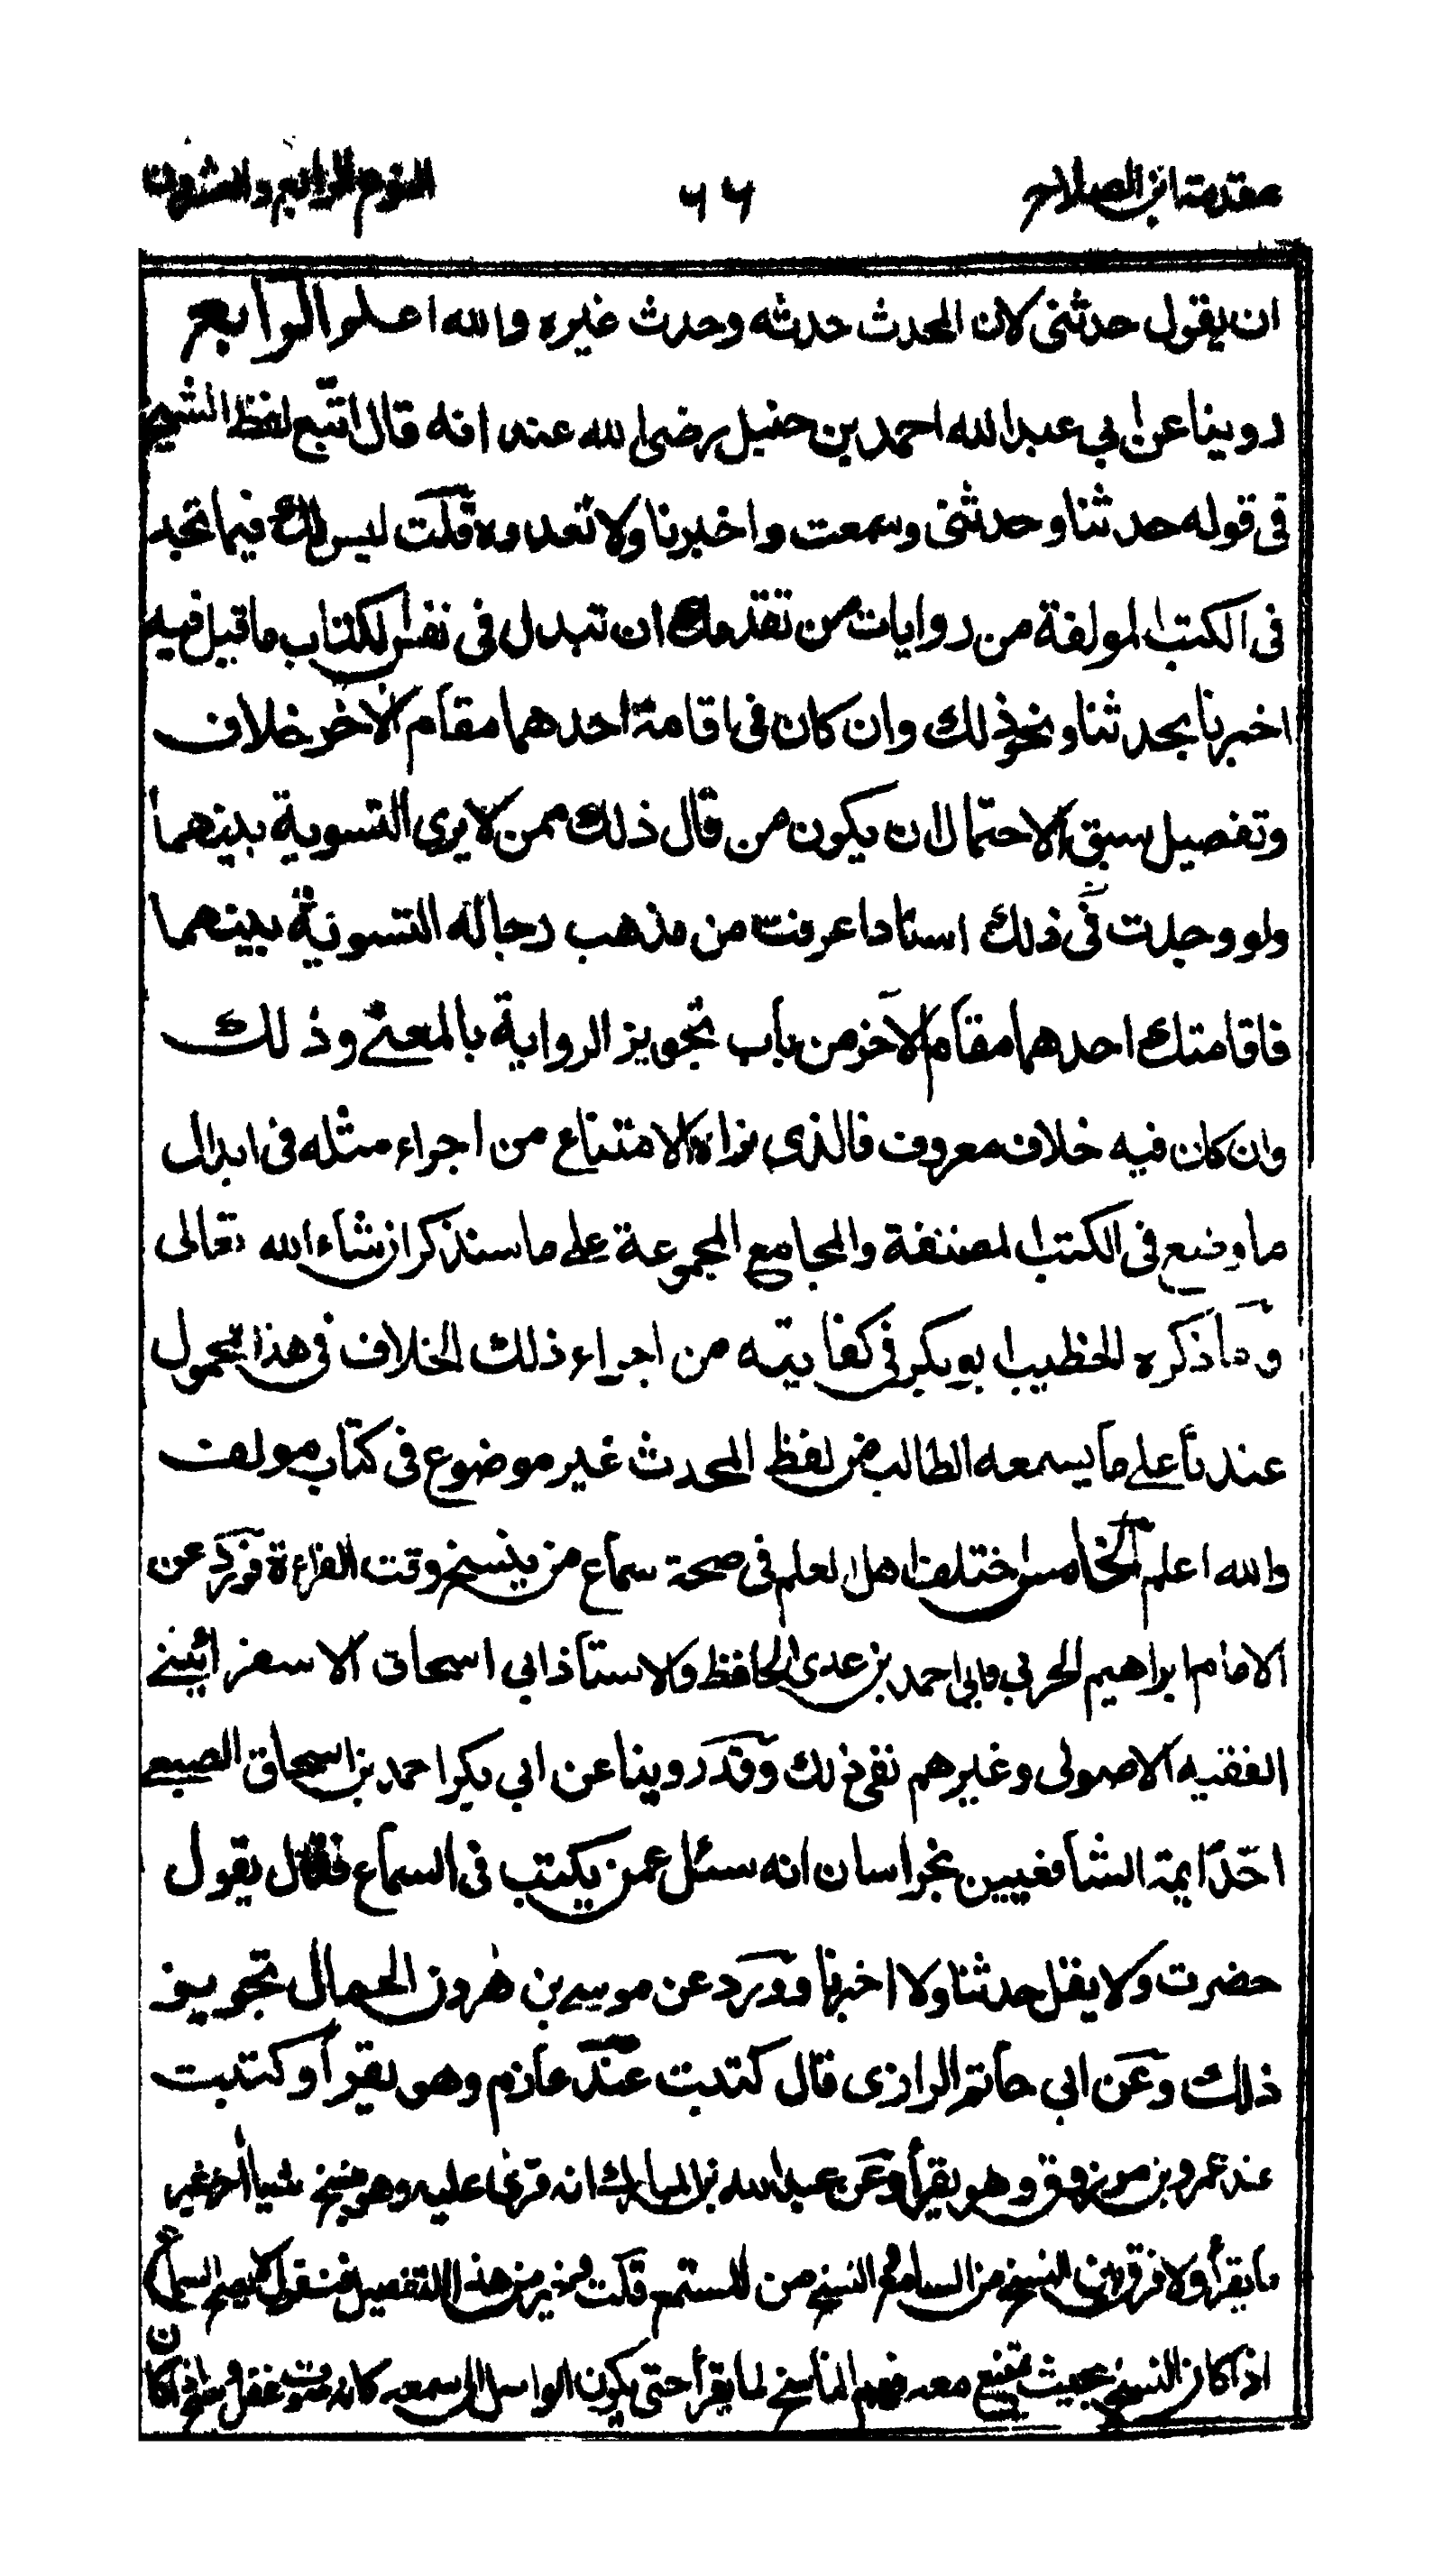 مقدمة ابن الصلاح ٦٦ النوع الرابع والعشرون
ان يقول حدثنى لان المحدث حدثه وحدث غيره والله اعلم الرابع
روينا عن ابي عبد الله احمد بن حنبل رضى الله عنه انه قال اتبع لفظ الشيخ
فى قوله حدثنا وحدثنى وسمعت واخبرنا ولا تعدوه قلت ليس لك فيما تجد
فى الكتب المولفة من روايات من تقدمك ان تبدل فى نفس الكتاب ما قيل فيه
اخبرنا بحدثنا ونحو ذلك وان كان فى اقامة احدهما مقام الآخر خلاف
وتفصيل سبق لاحتمال ان يكون من قال ذلك ممن لا يرى التسوية بينهما
ولو وجدت فى ذلك اسنادا عرفت من مذهب رجاله التسوية بينهما
فاقامتك احدهما مقام الآخر من باب تجويز الرواية بالمعنى وذلك
وان كان فيه خلاف معروف فالذى نراه الامتناع من اجراء مثله فى ابدال
ما وضع فى الكتب المصنفة والمجامع المجموعة على ما سنذكر ان شاء الله تعالى
وما ذكره الخطيب ابو بكر فى كفايته من اجراء ذلك الخلاف فى هذا محمول
عندنا على ما يسمعه الطالب من لفظ المحدث غير موضوع فى كتاب مولف
والله اعلم الخامس اختلف اهل العلم فى صحة سماع من ينسخ وقت القراءة فورد عن
الامام ابراهيم الحربي وابي احمد بن عدى الحافظ والاستاذ ابي اسحاق الاسفرائينى
الفقيه الاصولى وغيرهم نفى ذلك وقد روينا عن ابي بكر احمد بن اسحاق الصبغى
احد ايمة الشافعيين بخراسان انه سئل عمن يكتب فى السماع فقال يقول
حضرت ولا يقل حدثنا ولا اخبرنا وورد عن موسى بن هرون الحمال تجويز
ذلك وعن ابي حاتم الرازى قال كتبت عند عارم وهو يقرأ وكتبت
عند عمرو بن مرزوق وهو يقرأ وعن عبد الله بن المبارك انه قرئ عليه وهو ينسخ شيأ آخر غير
ما يقرأ ولا فرق بين النسخ من السامع والنسخ من المستمع قلت وخير من هذا التفصيل فنقول لا يصح السماع
اذا كان النسخ بحيث يمتنع معه فهم الناسخ لما يقرأ حتى يكون الواصل الى سمعه كانه صوت غفل و